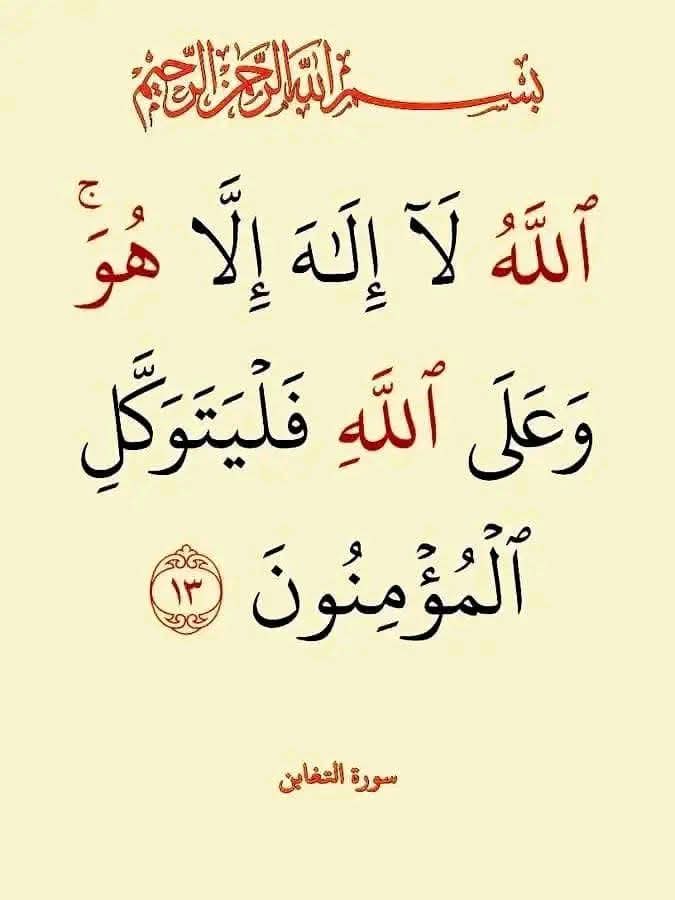 بِسْمِ اللَّهِ الرَّحْمَنِ الرَّحِيمِ
ٱللَّهُ لَآ إِلَـٰهَ إِلَّا هُوَ ۚ
وَعَلَى ٱللَّهِ فَلْيَتَوَكَّلِ
ٱلْمُؤْمِنُونَ ١٣
سورة التغابن